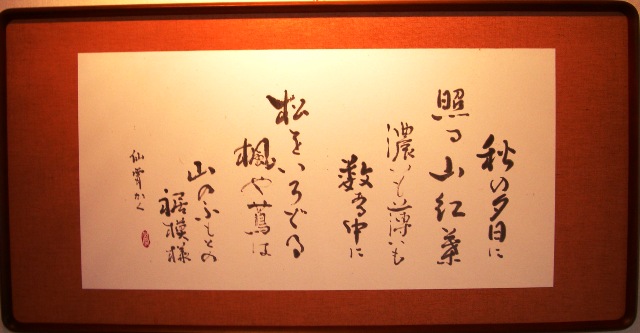 秋の夕日に
照る山紅葉
濃いも薄いも
数ある中に
松をいろどる
楓や蔦は
山のふもとの
裾模様
かく